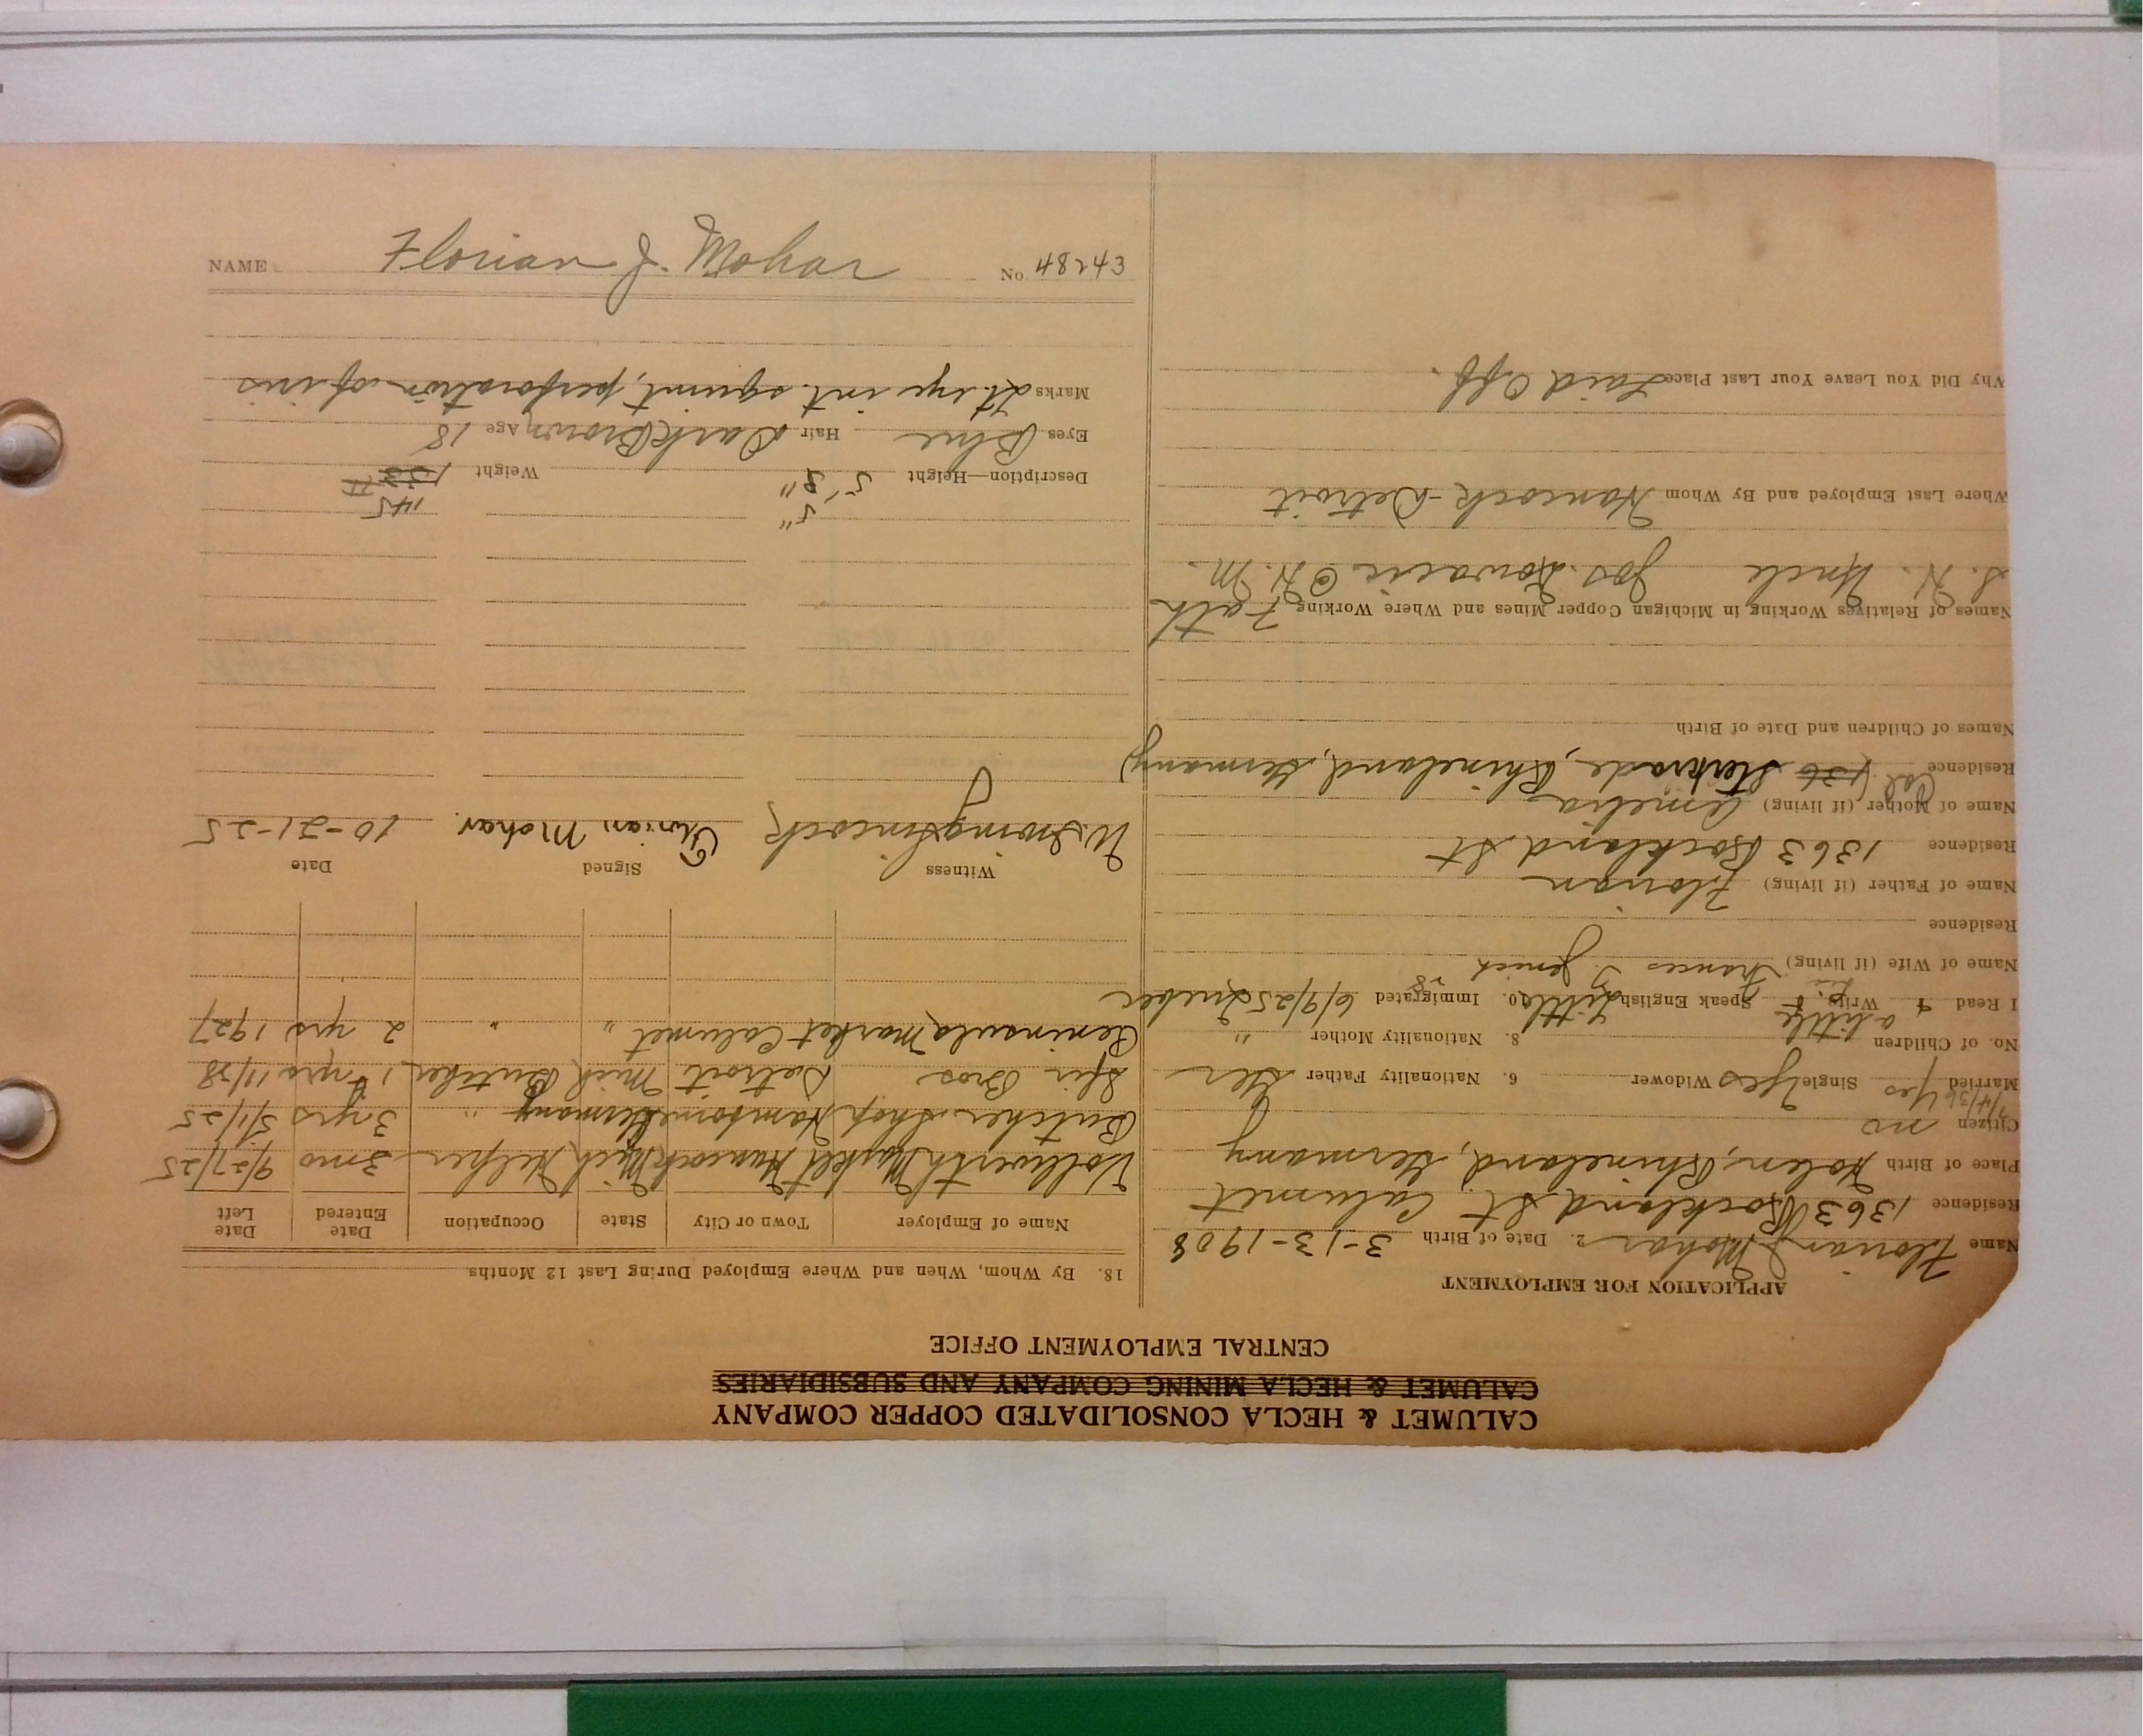 CALUMET & HECLA CONSOLIDATED COPPER COMPANY
CALUMET & HECLA MINING COMPANY AND SUBSIDIARIES
CENTRAL EMPLOYMENT OFFICE
APPLICATION FOR EMPLOYMENT
Name Florian J Mohar 2. Date of Birth 3-13-1908
Residence 1363 Rockland St. Calumet
Place of Birth Holen, Rhineland, Germany
Citizen no
7/4/36
Married yes Single yes Widower 6. Nationality Father Ger
No. of Children 8. Nationality Mother "
a little
I Read Write Speak English Little 10. Immigrated 6/9/25 Quebec
28
Name of Wife (if living) Frances J.
Residence
Name of Father (if living) Florian
Residence 1363 Rockland St
Name of Mother (if living) Amelia
Residence Cal (136 Sterkrade, Rhineland, Germany)
Names of Children and Date of Birth
Names of Relatives Working in Michigan Copper Mines and Where Working Fath
S. H. Uncle Jos. C H. M.
Where Last Employed and By Whom Hancock-Detroit
Why Did You Leave Your Last Place Laid Off.
18. By Whom, When and Where Employed During Last 12 Months
Name of Employer Town or City State Occupation Date Entered Date Left
Vollwerth Market Hancock Mich Helper 3 mo 9/27/25
Butcher Shop Hamborn Germany " 3 yrs 5/1/25
Bros Detroit Mich Butcher 1 yrs 11/28
Peninsula Market Calumet " " 2 yrs 1927
Witness Signed Date
Florian Mohar. 10-21-25
5" 145
Description—Height 5' 8" Weight 133
Eyes Blue Hair Dark Brown Age 18
Marks Lt eye int. squint, perforation of iris
NAME Florian J. Mohar No. 48243